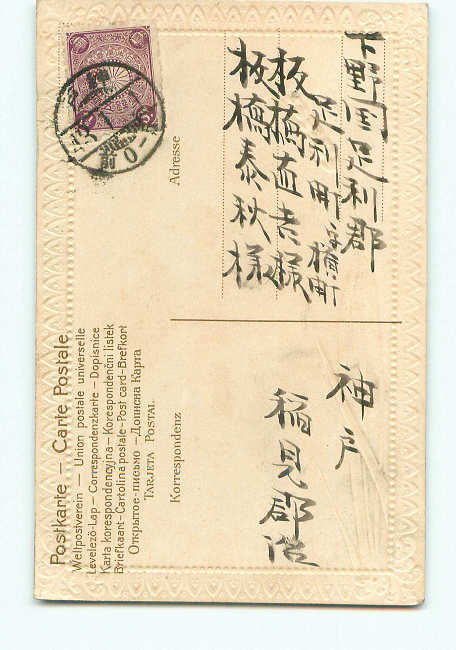 下野国足利郡
足利町
板橋直吉様
板橋泰秋様
神戸
稲見郡造
Postkarte – Carte Postale
Weltpostverein – Union postale universelle
Levelező-Lap – Correspondenzkarte – Dopisnice
Karta korespondencyjna – Korespondenční lístek
Briefkaart – Cartolina postale – Post card – Brefkort
Открытое-письмо – Дописна Карта
TARJETA POSTAL
Adresse
Korrespondenz